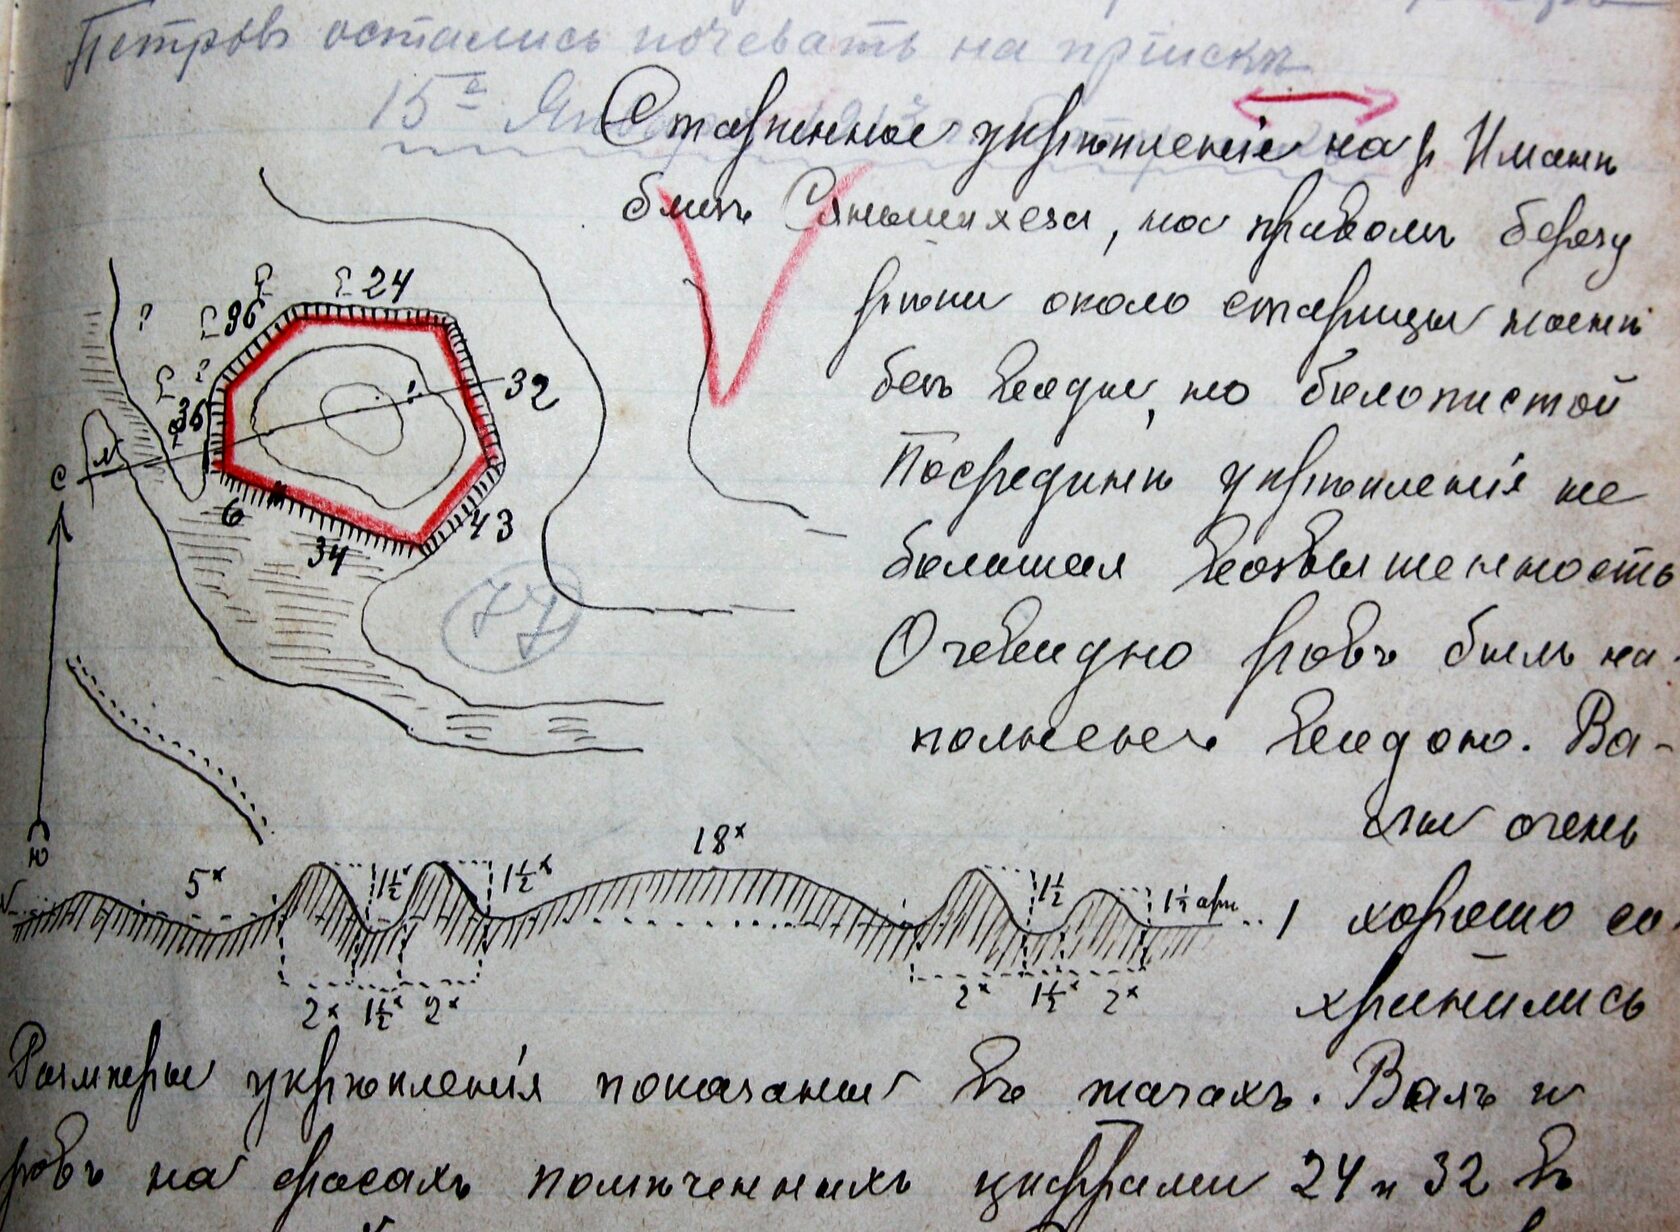 Петровъ остались ночевать на прiискѣ
15го Янв
Старинное укрѣпленiе на р Иманѣ
близъ Сяньшихеза, на правомъ берегу
рѣки около старицы почти
безъ воды, но болотистой
Посрединѣ укрѣпленiя не
большая возвышенность
Очевидно ровъ былъ на-
полненъ водою. Ва-
лы очень
хорошо со-
хранились
24
96
36
32
43
34
6
С
М
Ю
77
5х
1½х
1½х
18х
1½
1½ арш
2х 1½х 2х
2х 1½х 2х
Размѣры укрѣпленiя показаны въ шагахъ. Валъ и
ровъ на фасахъ помѣченныхъ цифрами 24 и 32 въ